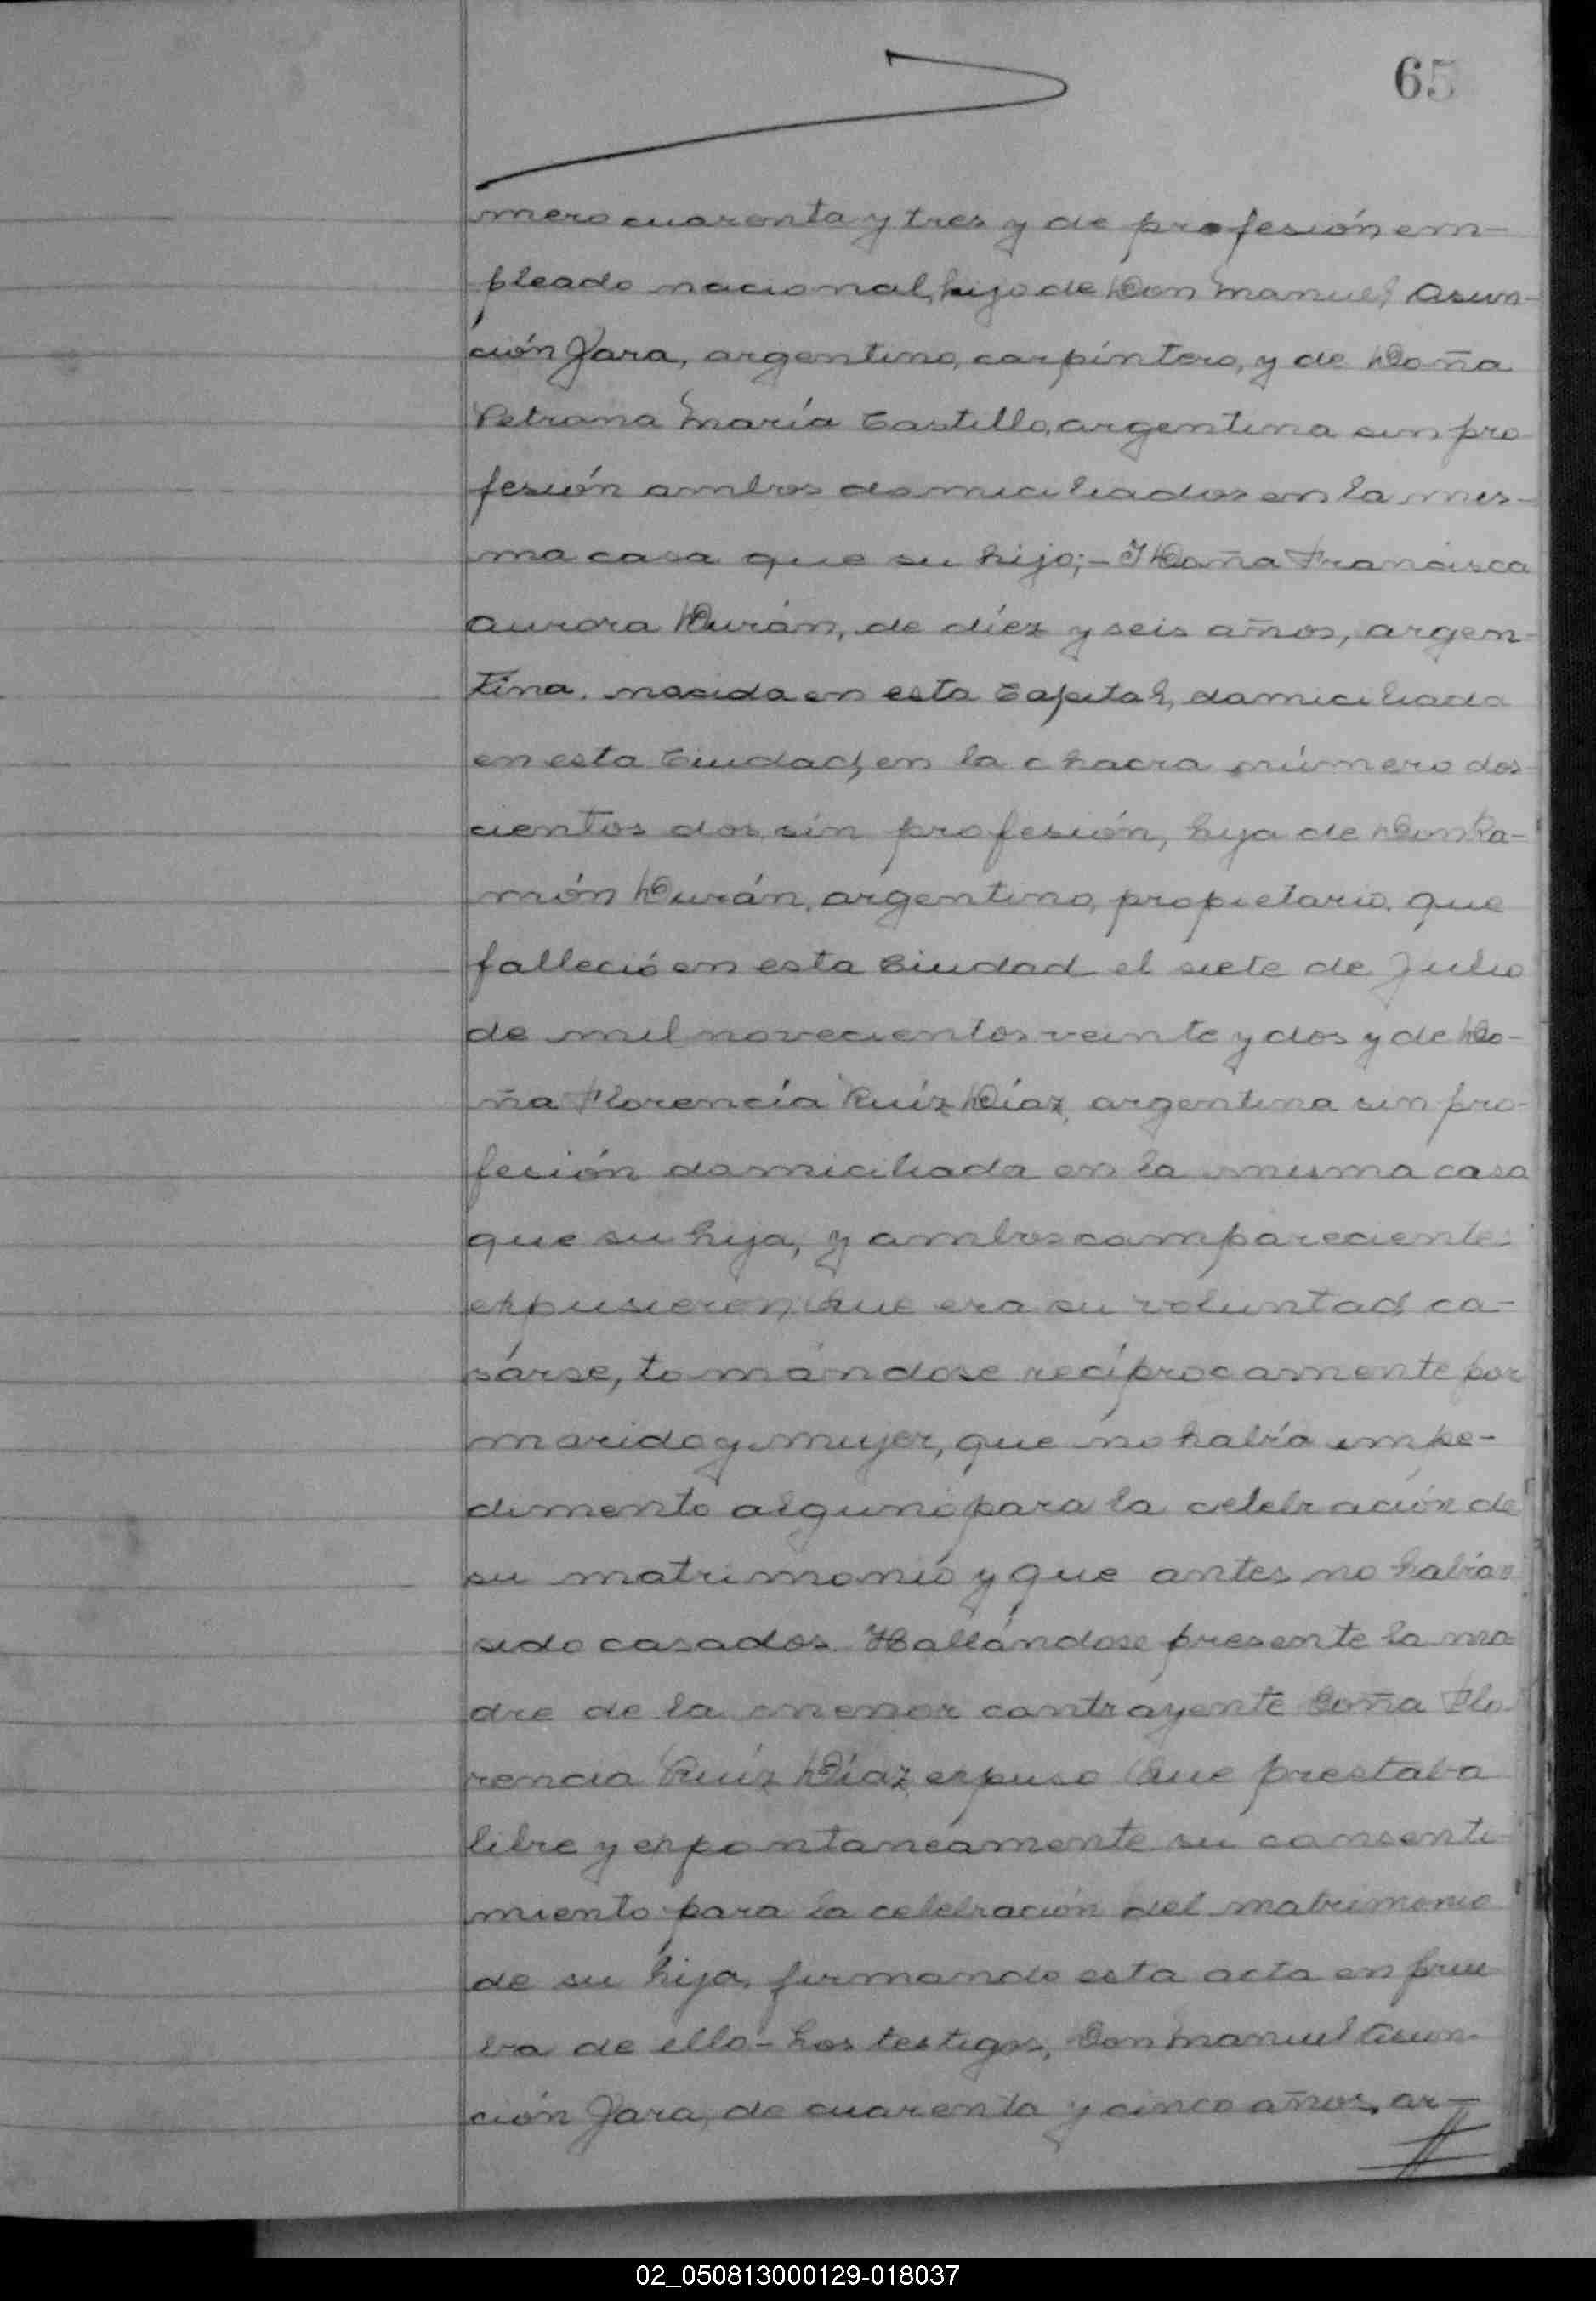 65
mero cuarenta y tres y de profesión em-
pleado nacional, hijo de Don Manuel Asun-
ción Jara, argentino, carpintero, y de Doña
Petrona María Castillo, argentina sin pro
fesión ambos domiciliados en la mis-
ma casa que su hijo;- Y Doña Francisca
Aurora Durán, de diez y seis años, argen-
tina, nacida en esta Capital, domiciliada
en esta Ciudad, en la chacra número dos-
cientos dos sin profesión, hija de Don Ra-
món Durán, argentino, propietario, que
falleció en esta Ciudad el siete de Julio
de mil novecientos veinte y dos y de Do-
ña Florencia Ruíz Díaz, argentina sin pro-
fesión domiciliada en la misma casa
que su hija, y ambos comparecientes
expusieron, Que era su voluntad ca-
sárse, tomándose recíprocamente por
marido y mujer, que no había impe-
dimento alguno para la celebración de
su matrimonio y que antes no habían
sido casados. Hallándose presente la ma-
dre de la menor contrayente Doña Flo
rencia Ruíz Díaz, expuso Que prestaba
libre y expontaneamente su consenti-
miento para la celebración del matrimonio
de su hija, firmando esta acta en prue
ba de ello- Los testigos, Don Manuel Asun-
ción Jara, de cuarenta y cinco años, ar-
02_050813000129-018037